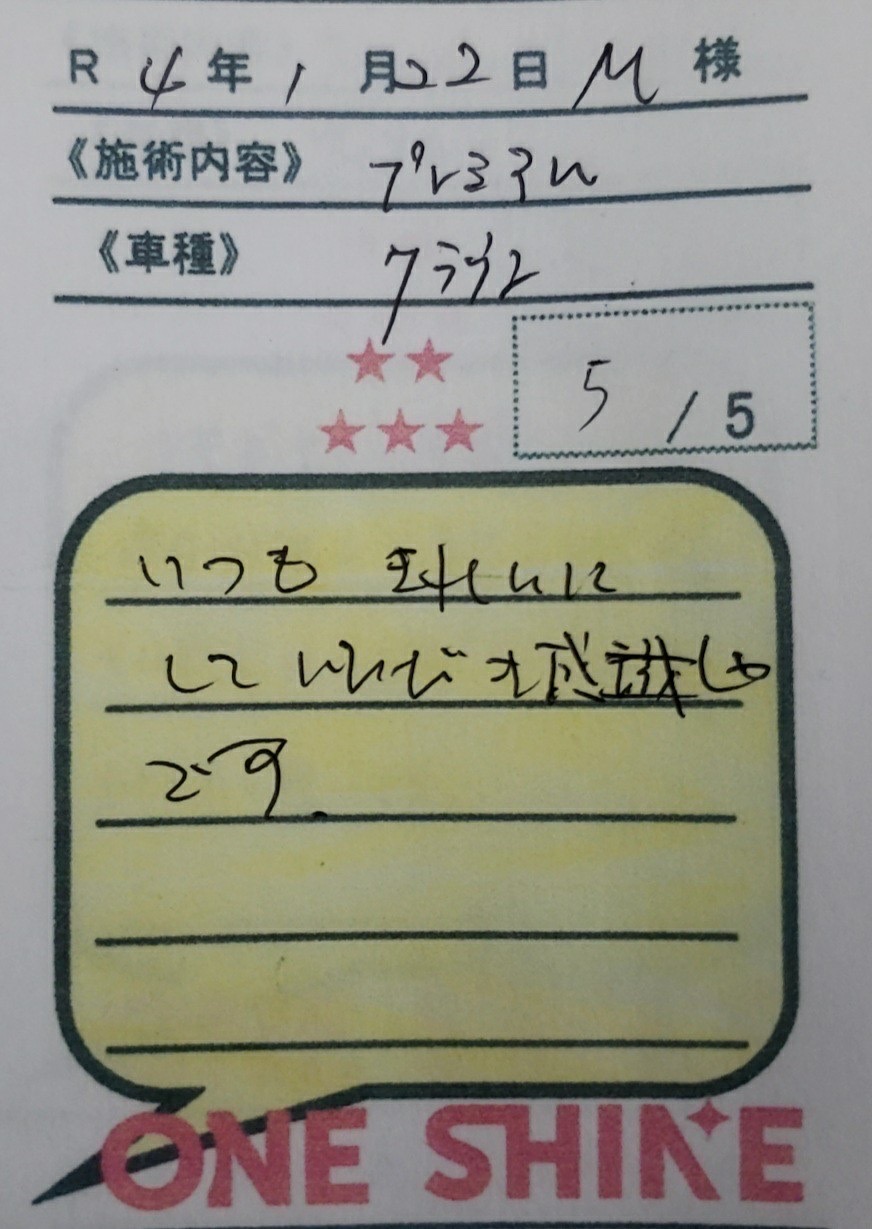 R 4年 1月22日 M 様
《施術内容》 プレミアム
《車種》 クラウン
5 / 5
いつも きれいに
して 大感謝
です.
ONE SHINE